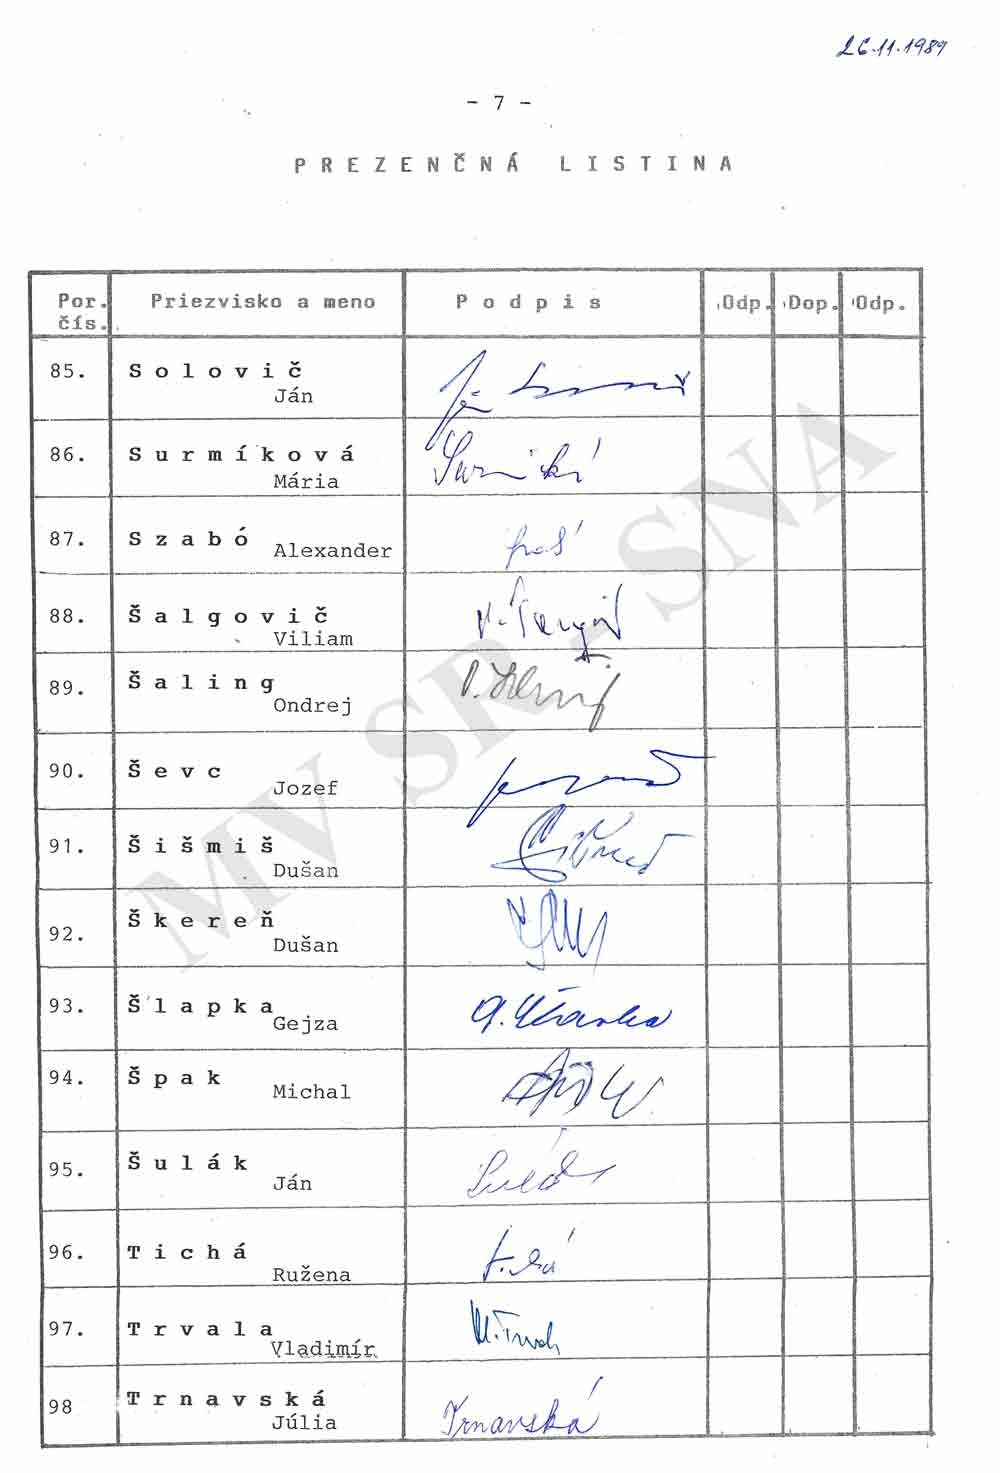 26.11.1989
- 7 -
PREZENČNÁ LISTINA
Por. čís. Priezvisko a meno Podpis Odp. Dop. Odp.
85. Solovič
Ján
86. Surmíková
Mária
87. Szabó
Alexander
88. Šalgovič
Viliam
89. Šaling
Ondrej
90. Ševc
Jozef
91. Šišmiš
Dušan
92. Škereň
Dušan
93. Šlapka
Gejza
94. Špak
Michal
95. Šulák
Ján
96. Tichá
Ružena
97. Trvala
Vladimír
98 Trnavská
Júlia Trnavská
MV SR - SNA